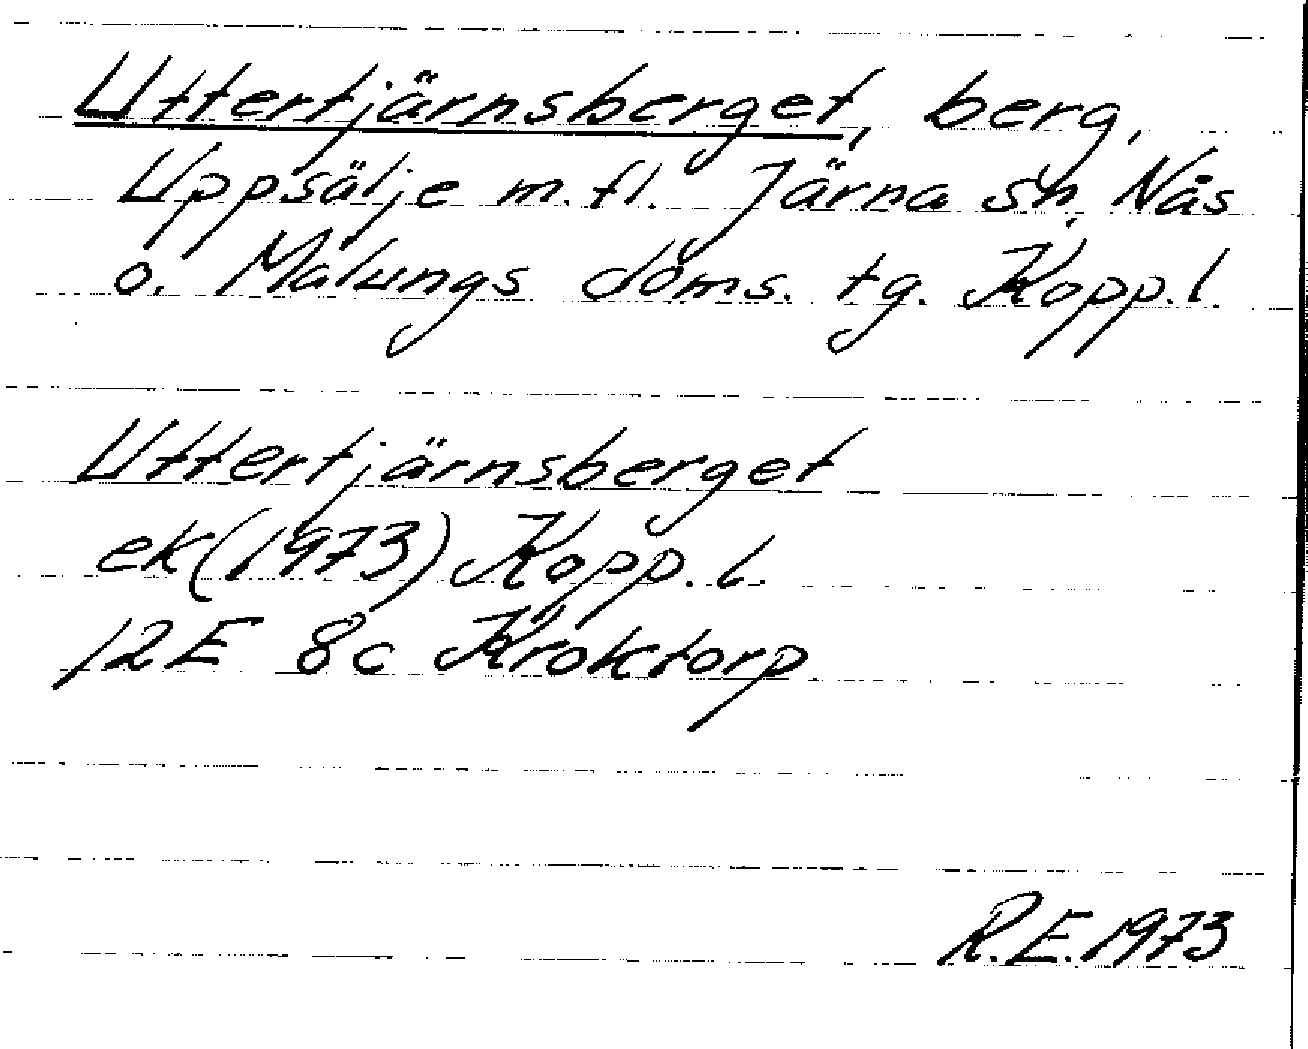 Uttertjärnsberget, berg,
Uppsälje m.fl. Järna sn, Nås
o. Malungs doms. tg. Kopp. l.
Uttertjärnsberget
ek (1973) Kopp. l.
12E 8c Kroktorp
R.E. 1973